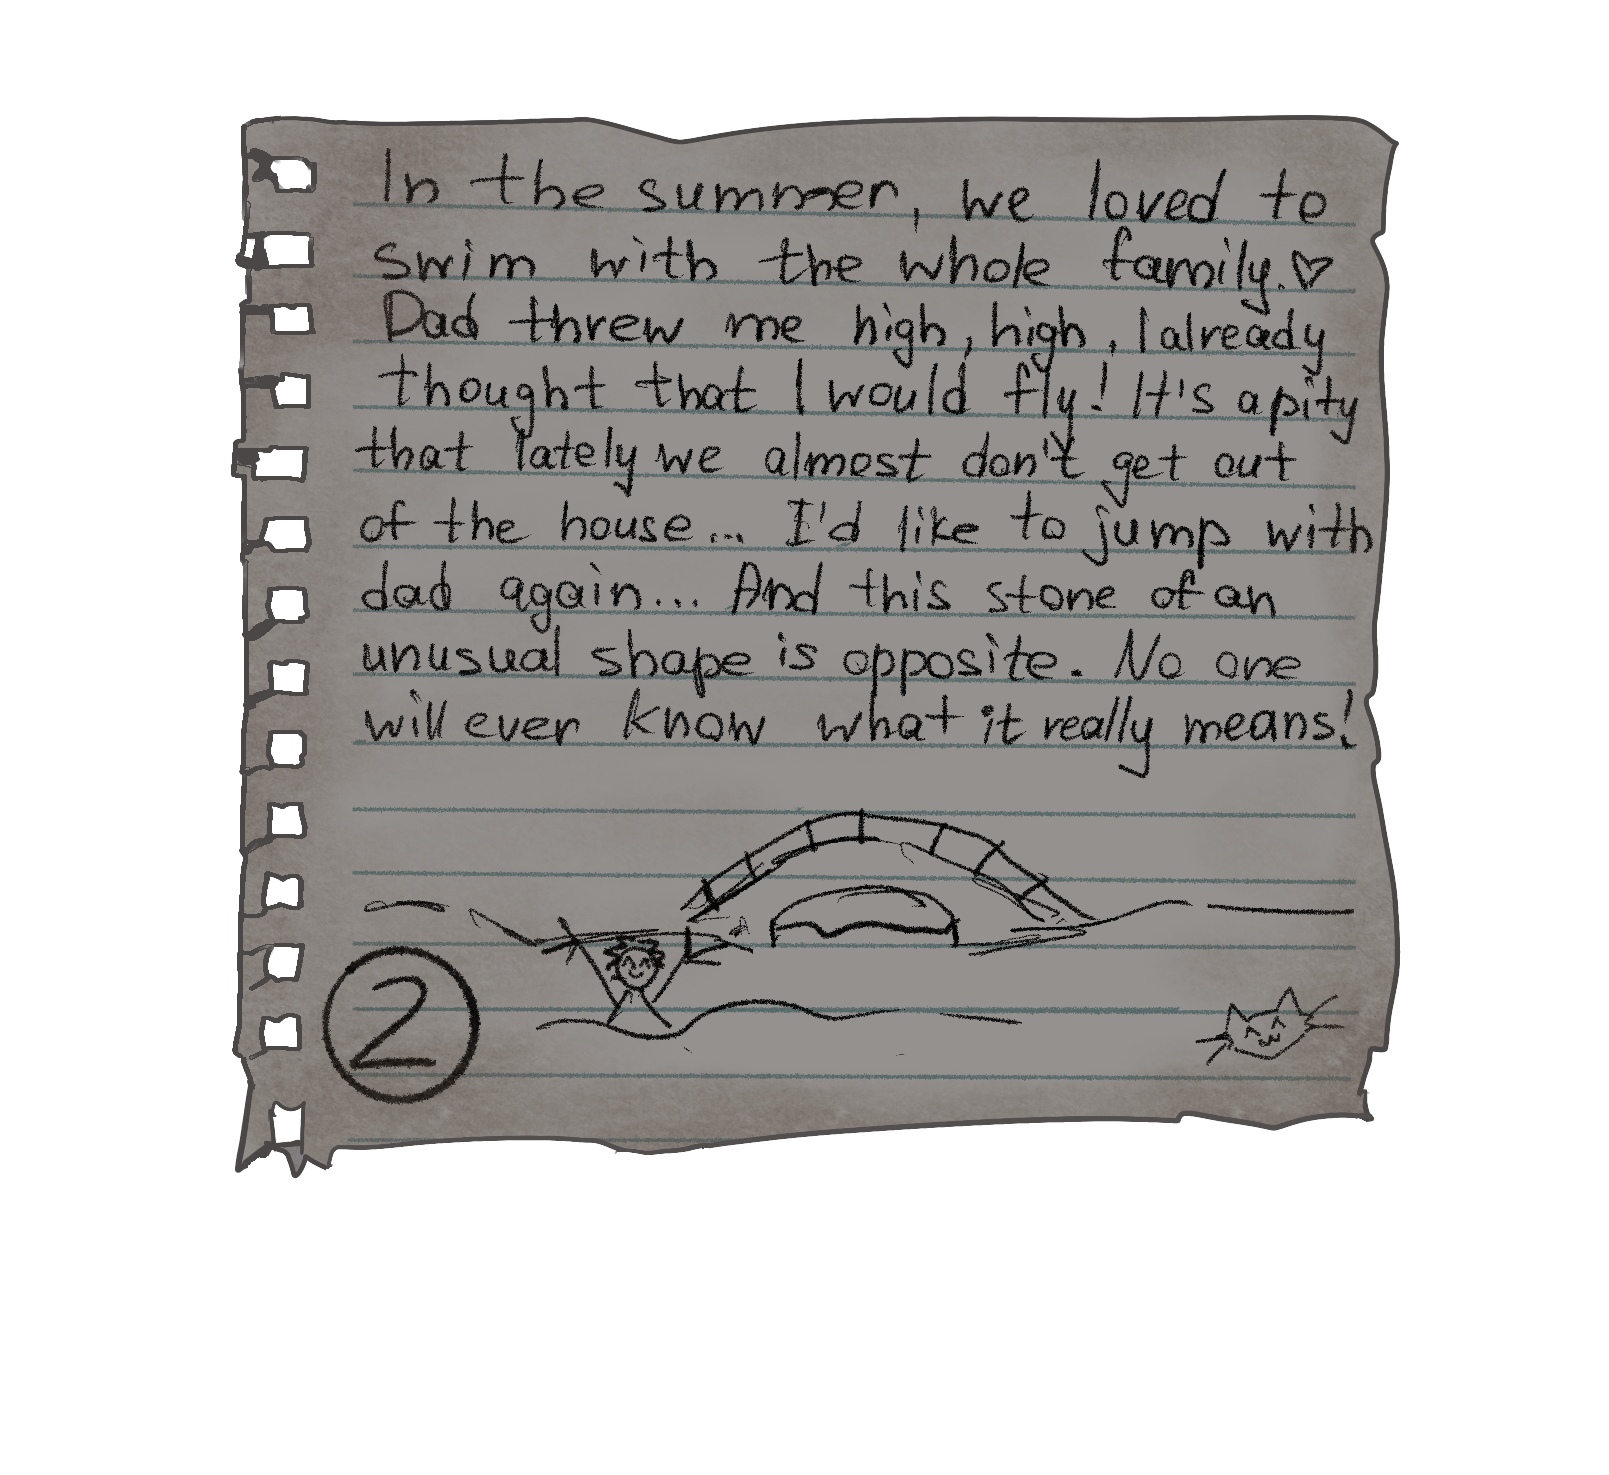 In the summer, we loved to
swim with the whole family.♡
Dad threw me high, high, I already
thought that I would fly! It's a pity
that lately we almost don't get out
of the house... I'd like to jump with
dad again... And this stone of an
unusual shape is opposite. No one
will ever know what it really means!
2